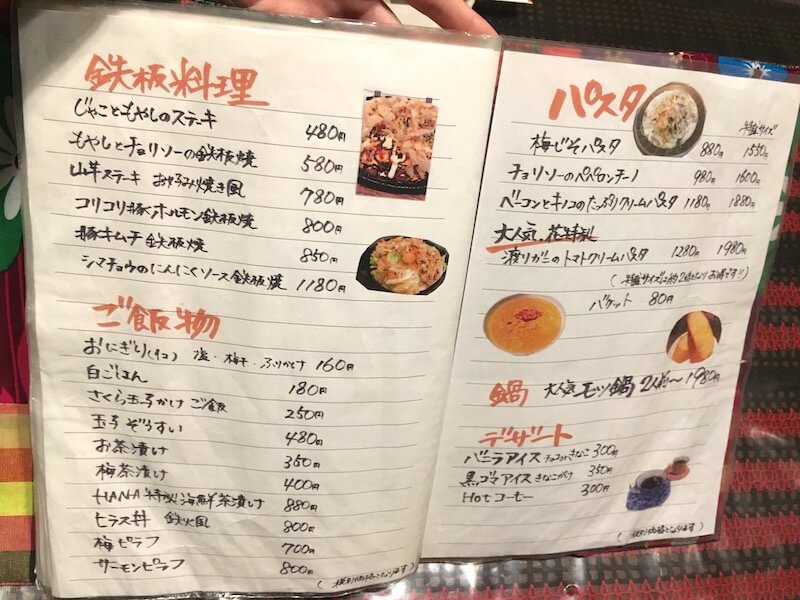 鉄板料理
じゃこともやしのステーキ 480円
もやしとチョリソーの鉄板焼 580円
山芋ステーキ お好み焼き風 780円
コリコリ豚ホルモン鉄板焼 800円
豚キムチ鉄板焼 850円
シマチョウのにんにくソース鉄板焼 1180円
ご飯物
おにぎり(1コ) 塩・梅干・ふりかけ 160円
白ごはん 180円
さくら玉子かけご飯 250円
玉子ぞうすい 480円
お茶漬け 350円
梅茶漬け 400円
HANA特製海鮮茶漬け 880円
ヒラス丼 鉄火風 800円
梅ピラフ 700円
サーモンピラフ 800円
(税別価格となります)
パスタ
大盛サイズ
梅じそパスタ 880円 1550円
チョリソーのペペロンチーノ 980円 1600円
ベーコンとキノコのたっぷりクリームパスタ 1180円 1880円
大人気・花特製
渡りガニのトマトクリームパスタ 1280円 1980円
バケット 80円
鍋 大人気 モツ鍋 2人前〜1980円
デザート
バニラアイス チョコorきなこ 300円
黒ゴマアイス きなこがけ 350円
Hotコーヒー 300円
(税別価格となります)